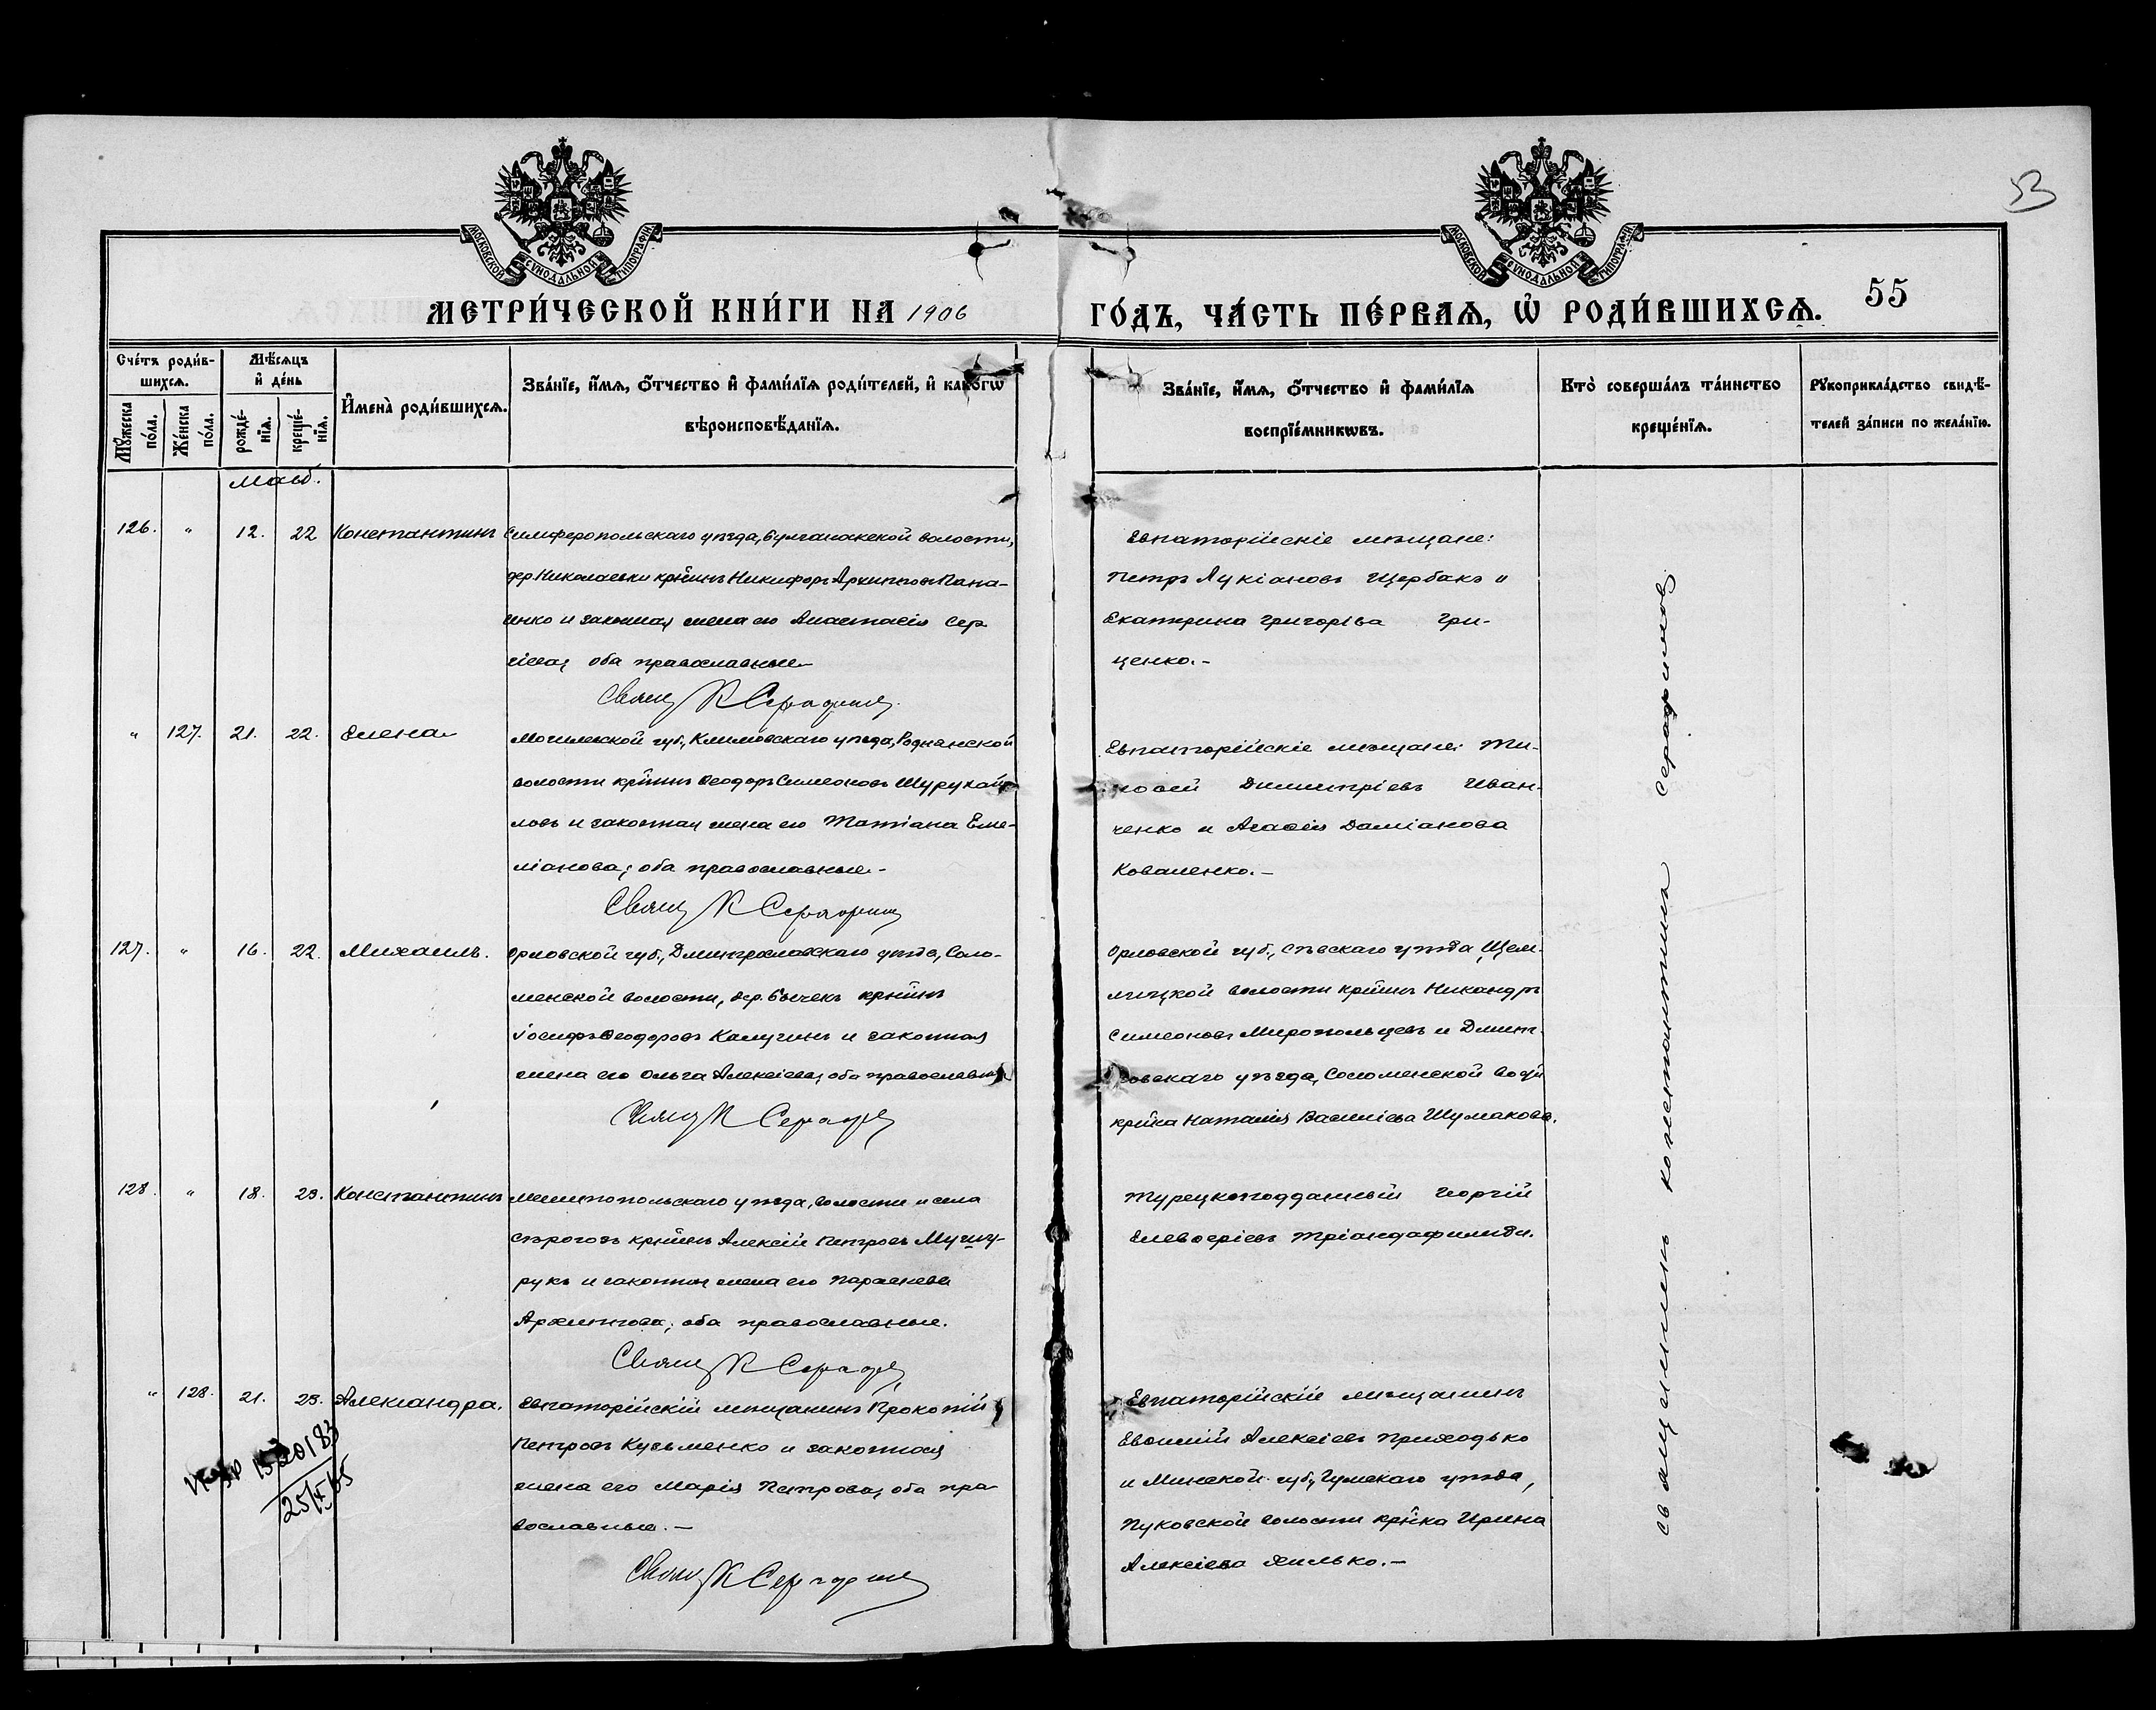 53
МОСКОВСКОЙ СѴНОДАЛЬНОЙ ТИПОГРАФІИ
МОСКОВСКОЙ СѴНОДАЛЬНОЙ ТИПОГРАФІИ
МЕТРИ́ЧЕСКОЙ КНИ́ГИ НА 1906
ГО́ДЪ, ЧА́СТЬ ПЕ́РВАѦ, Ѡ҆ РОДИ́ВШИХСѦ. 55
Сче́тъ роди́в-
шихсѧ.
Мꙋ́жеска по́ла.
Же́нска по́ла.
Мѣ́сѧцъ и҆ де́нь
рожде́-нїѧ.
креще́-нїѧ.
И҆мена̀ роди́вшихсѧ.
Зва́нїе, и҆́мѧ, ѻ҆́тчество и҆ фами́лїѧ роди́телей, и҆ како́гѡ
вѣроисповѣ́данїѧ.
Зва́нїе, и҆́мѧ, ѻ҆́тчество и҆ фами́лїѧ
воспрїе́мникѡвъ.
Кто̀ соверша́лъ та́инство
креще́нїѧ.
Рꙋкоприкла́дство свидѣ́-
телей за́писи по жела́нїю.
Май.
126. " 12. 22 Константинъ
Симферопольскаго уѣзда, Булганакской волости,
дер. Николаевки кр҃йинъ Никифоръ Архиповъ Пана-
сенко и законная жена его Анастасія Сер
гіева; оба православные
Свящ К Серафим
Евпаторійскіе мѣщане:
Петръ Лукіановъ Щербакъ и
Екатерина Григоріева Гри-
ценко.-
" 127. 21. 22. Елена
Могилевской губ., Климовскаго уѣзда, Роднянской
волости кр҃йинъ Ѳеодоръ Симеоновъ
ловъ и законная жена его Татіана Еме-
ліанова; оба православные.-
Свящ К Серафим
Евпаторійскіе мѣщане: Ти-
моѳей Димитріевъ Иван-
ченко и Агаѳія Даміанова
Коваленко.-
127. " 16. 22. Михаилъ.
Орловской губ., Дмитровскаго уѣзда, Соло-
менской волости, дер. Бычекъ кр҃йинъ
Іосифъ Ѳеодоровъ Калугинъ и законная
жена его Ольга Алексіева; оба православные
Свящ К Сераф
Орловской губ., Сѣвскаго уѣзда,
волости кр҃йинъ Никандръ
Симеоновъ Миропольцевъ и Дмит-
ровскаго уѣзда, Соломенской вол҃и
кр҃йка Наталія Василіева Шумакова.
128. " 18. 23. Константинъ
Мелитопольскаго уѣзда, волости и села
Сѣрогозъ кр҃йинъ Алексій Петровъ
рукъ и законная жена его Параскева
Архипова; оба православные.
Свящ К Сераф
Турецкоподданный Георгій
Елевѳеріевъ Тріандафилиди.
" 128. 21. 23. Александра.
Евпаторійскій мѣщанинъ Прокопій
Петровъ Кузьменко и законная
жена его Марія Петрова; оба пра
вославные.-
Свящ К Серафим
Евпаторійскій мѣщанинъ
Евѳимій Алексіевъ Приходько
и Минской губ., Игуменскаго уѣзда,
Пуковской волости кр҃йка Ирина
Алексіева Хилько.-
Священникъ Константинъ Серафимовъ